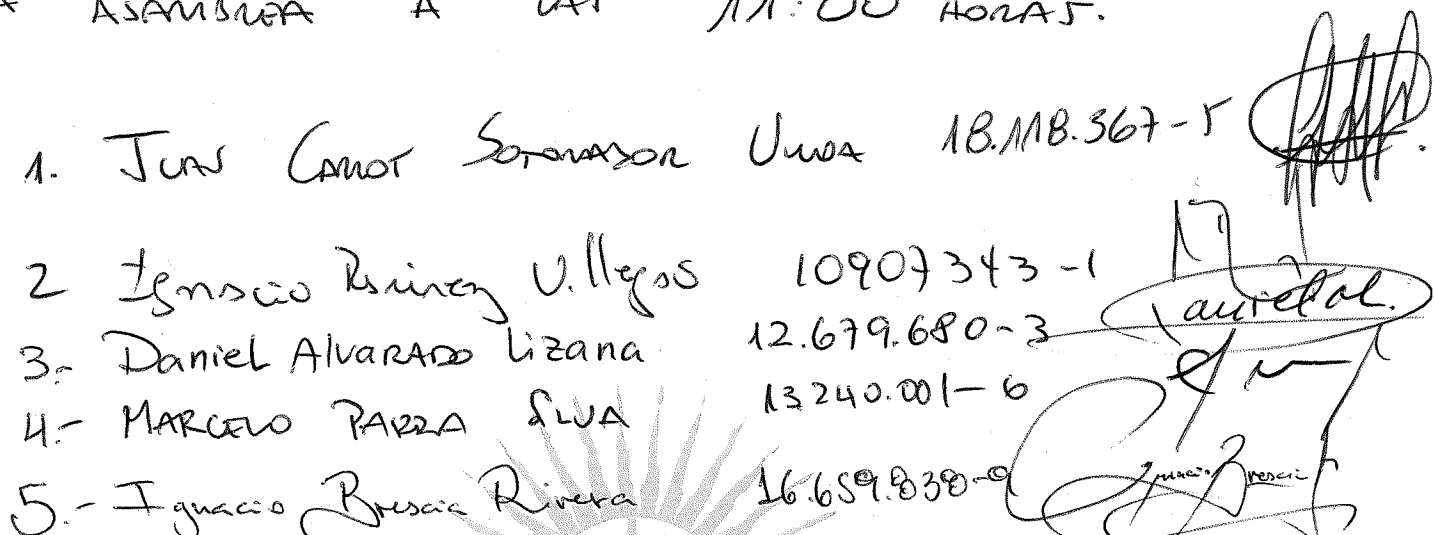 ASAMBLEA A LAS 11:00 HORAS.
1. JUAN CARLOS SOTOMAYOR UNDA 18.118.367-5
2 Ignacio Ramirez Villegas 10907343-1
3.- Daniel Alvarado Lizana 12.679.680-3
4.- MARCELO PARRA SILVA 13240.001-6
5.- Ignacio Brescia Rivera 16.659.838-9
Ignacio Brescia